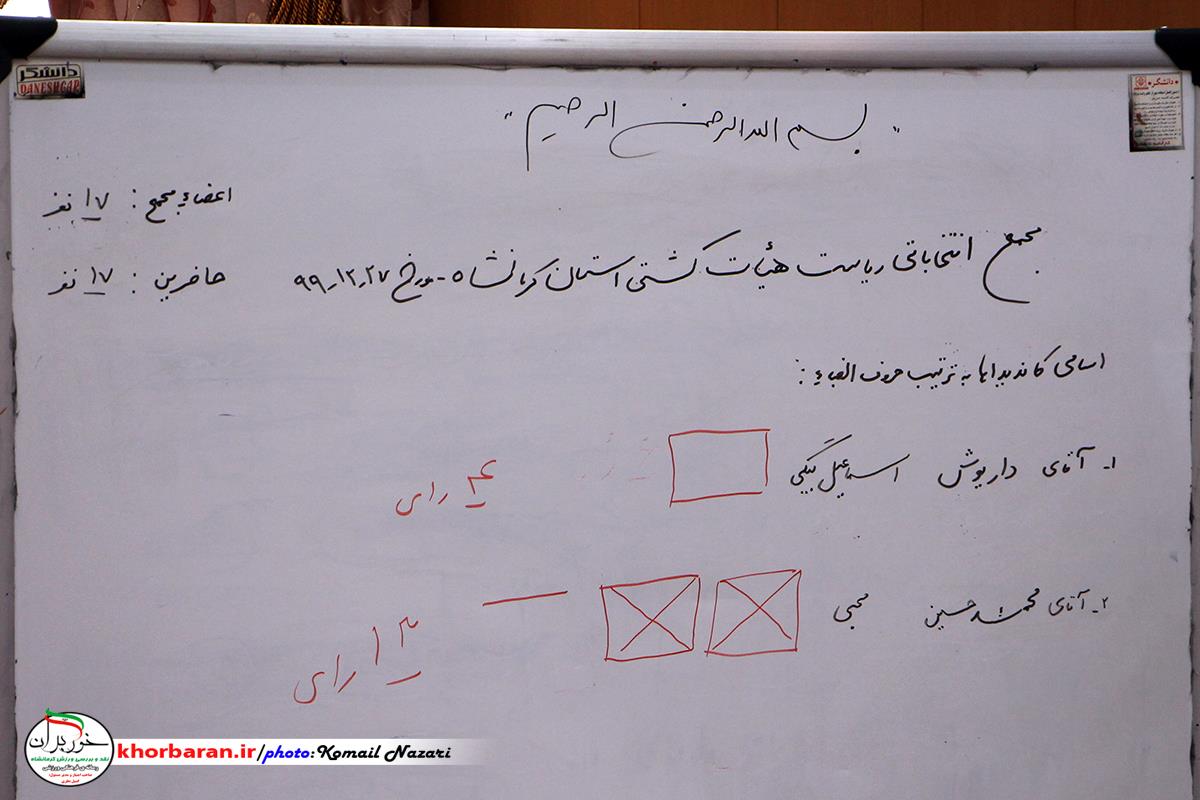 دانشگر
DANESHGAR
" بسم الله الرحمن الرحیم "
اعضاء مجمع : ۱۷ نفر
مجمع انتخاباتی ریاست هیأت کشتی استان کرمانشاه - مورخ ۹۹-۱۲-۲۷
حاضرین : ۱۷ نفر
اسامی کاندیداها به ترتیب حروف الفباء :
۱- آقای داریوش اسماعیل بیگی
۴ رای
۲- آقای محمد حسین محبی
۱۳ رای
خوربران
نقد و بررسی ورزش کرمانشاه
رسانه‌ی فرهنگی ورزشی
khorbaran.ir/photo: Komail Nazari